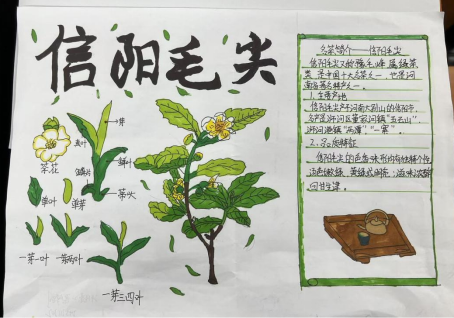 信阳毛尖
芽
真叶
鳞片
鲜叶
茶花
单叶
单芽
茶头
一芽一叶
一芽两叶
一芽三四叶
名茶简介——信阳毛尖
信阳毛尖又称豫毛峰，属绿茶
类，是中国十大名茶之一，也是河
南省著名特产之一。
1. 主要产地
信阳毛尖产于河南大别山的信阳市，
浉河港镇“两潭”、“一寨”。
2. 品质特征
信阳毛尖的色香味形均有独特个性，
回甘生津。